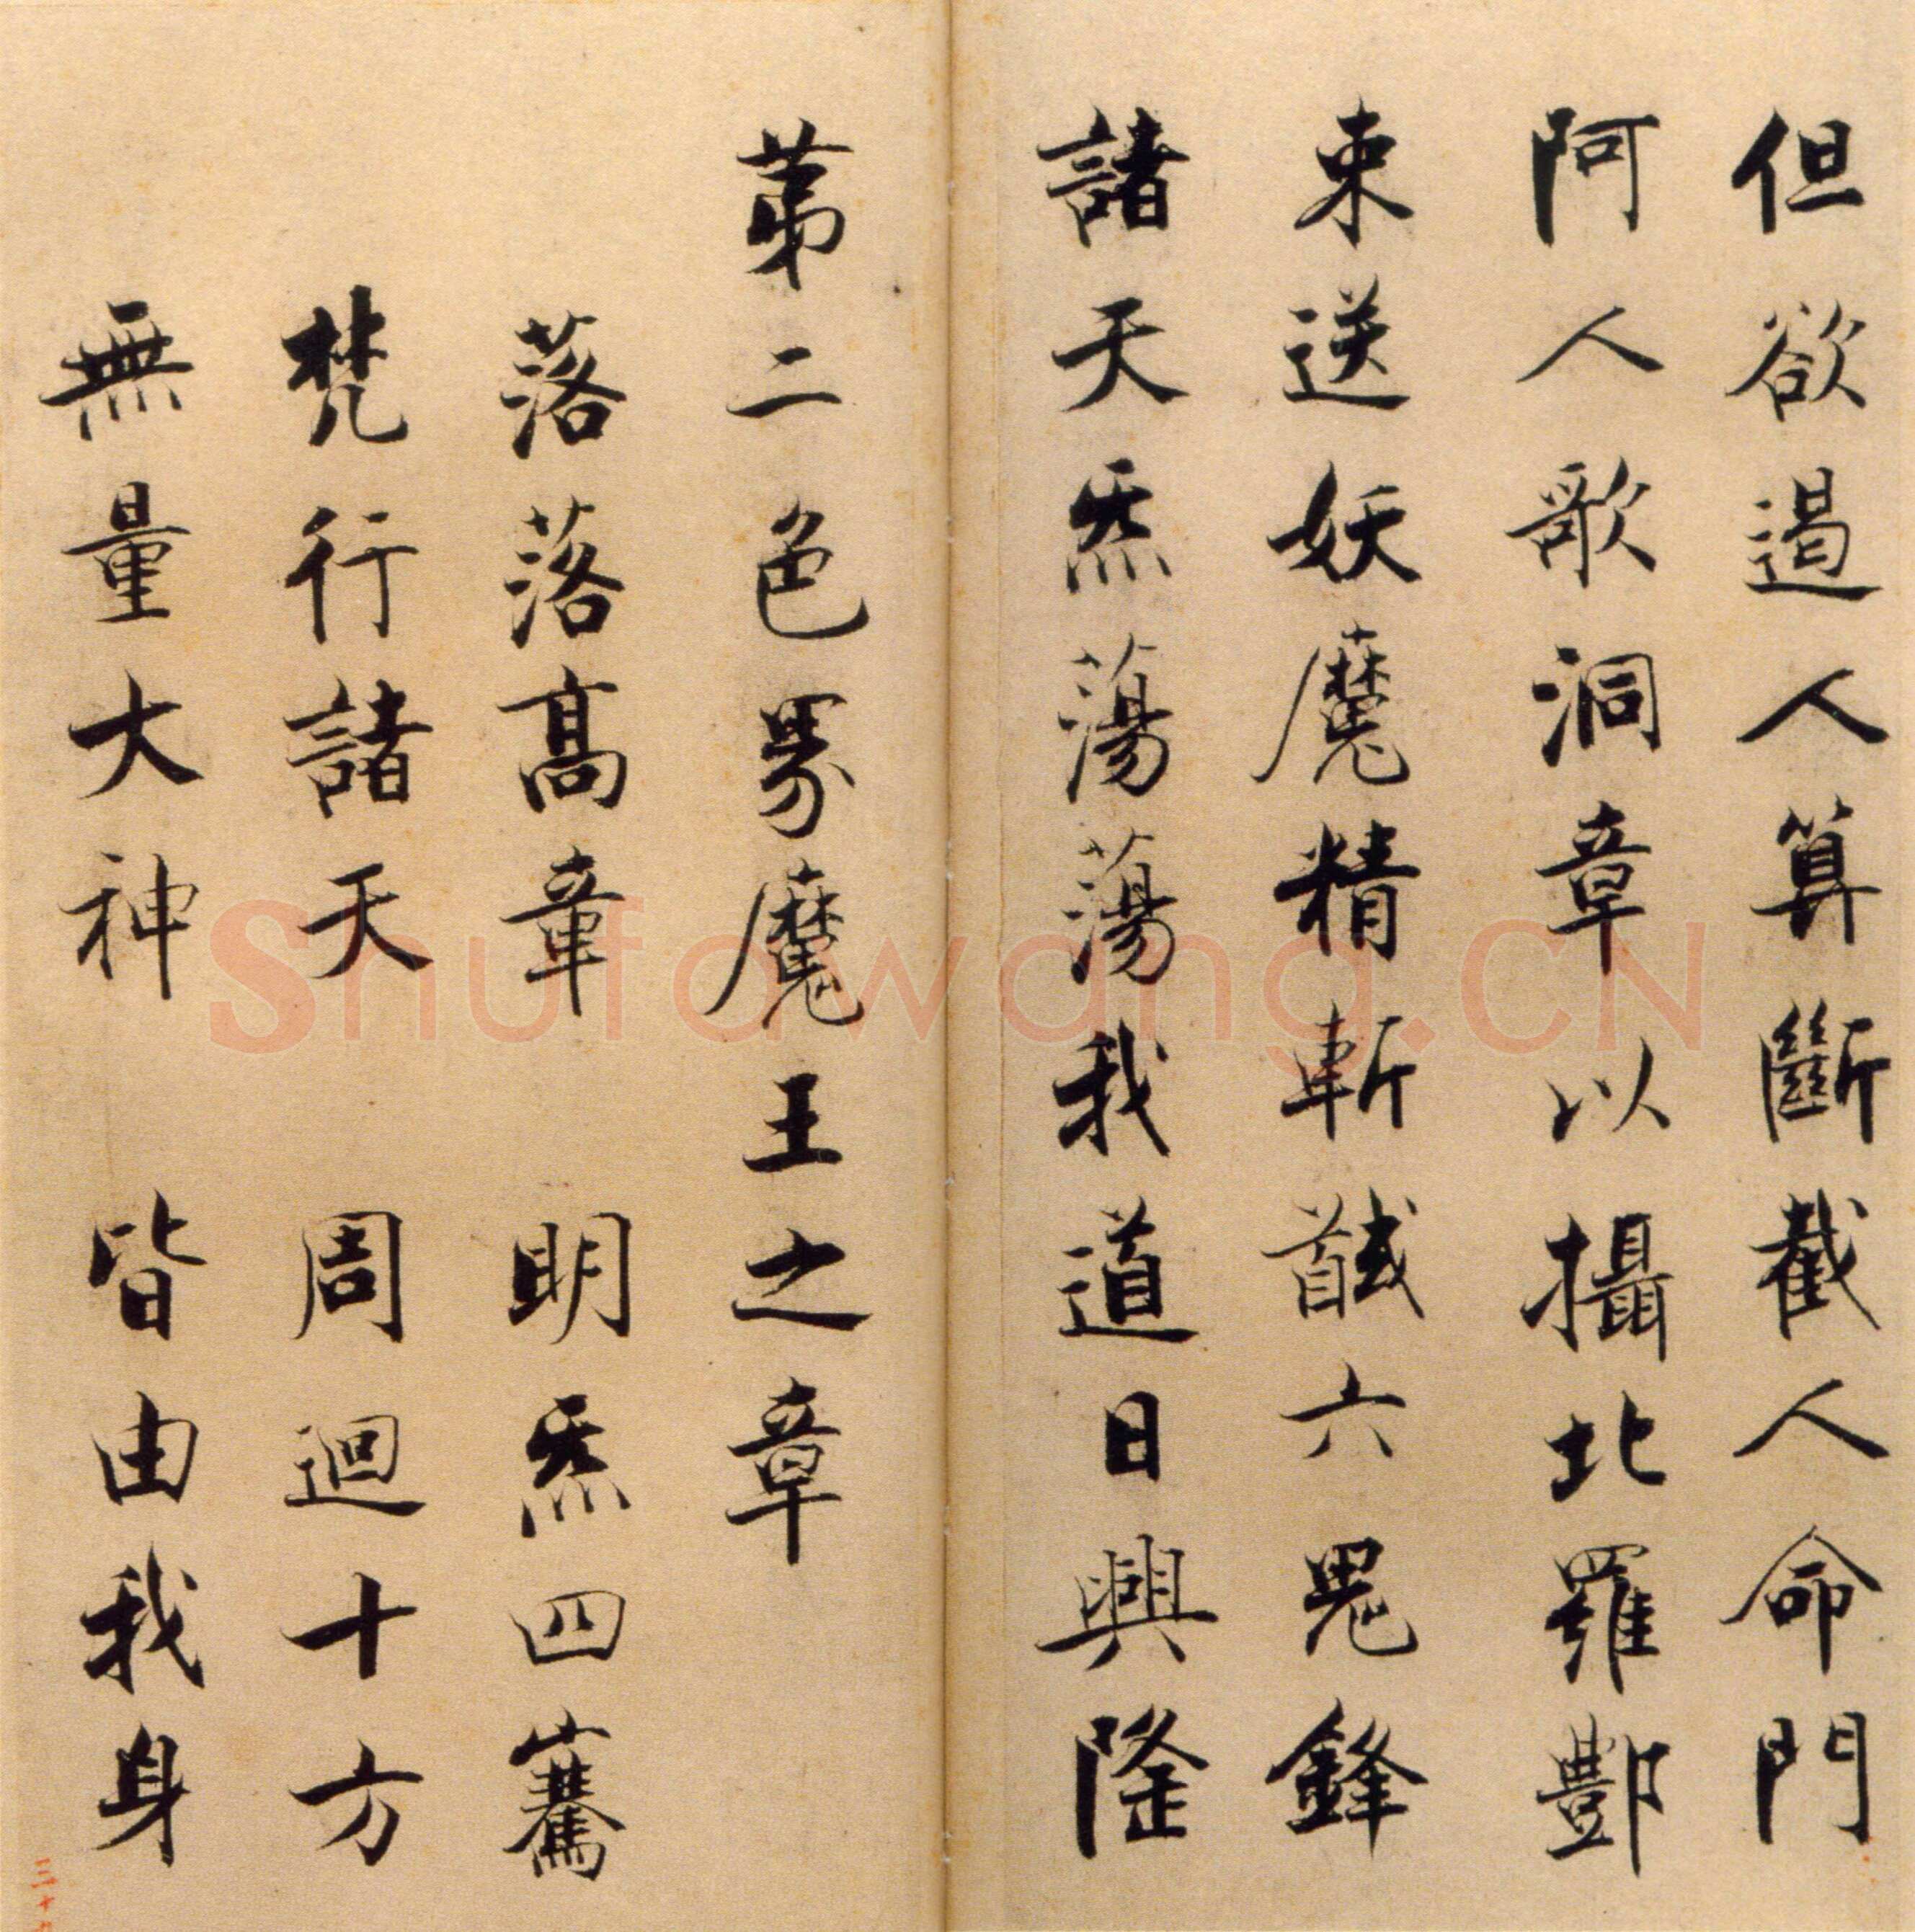 但欲遏人算斷截人命門
阿人歌洞章以攝北羅酆
束送妖魔精斬馘六鬼鋒
諸天炁蕩蕩我道日興隆
苐二色界魔王之章
落落高章 明炁四騫
梵行諸天 周迴十方
無量大神 皆由我身
Shufawang.CN